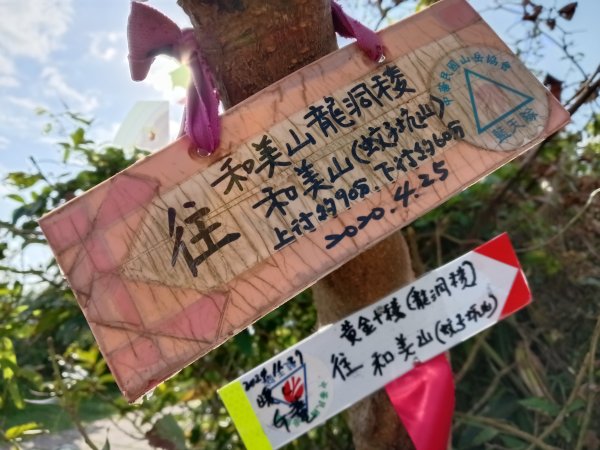 往
和美山龍洞稜
和美山(蚊子坑山)
上行約90分.下行約60分
2020.4.25
中華民國山岳協會
藍天隊
黃金十稜(龍洞稜)
往 和美山(蚊子坑山)